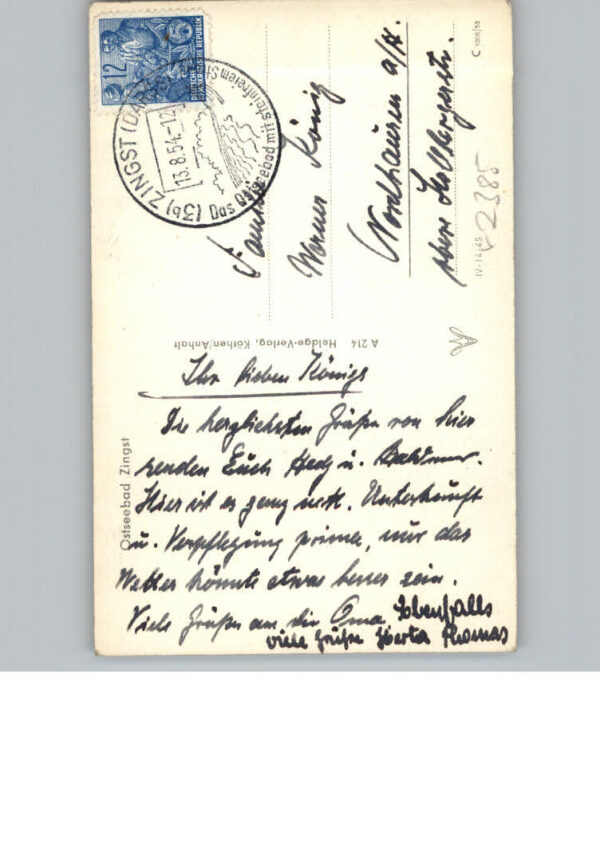 12
DEUTSCHE
DEMOKRATISCHE REPUBLIK
(3b) ZINGST
13.8.54-12
Das Ostseebad mit steinfreiem
Familie
Werner König
Nordhausen a/H.
obere
C 5006/53
IV-14-45
2385
A 214 Heldge-Verlag, Köthen/Anhalt
Ostseebad Zingst
Ihr lieben Königs
Die herzlichsten Grüße von hier
senden Euch Hedj u.
Hier ist es ganz nett. Unterkunft
u. Verpflegung prima, nur das
Wetter könnte etwas besser sein.
Viele Grüße an die Oma. Ebenfalls
viele Grüße Thomas